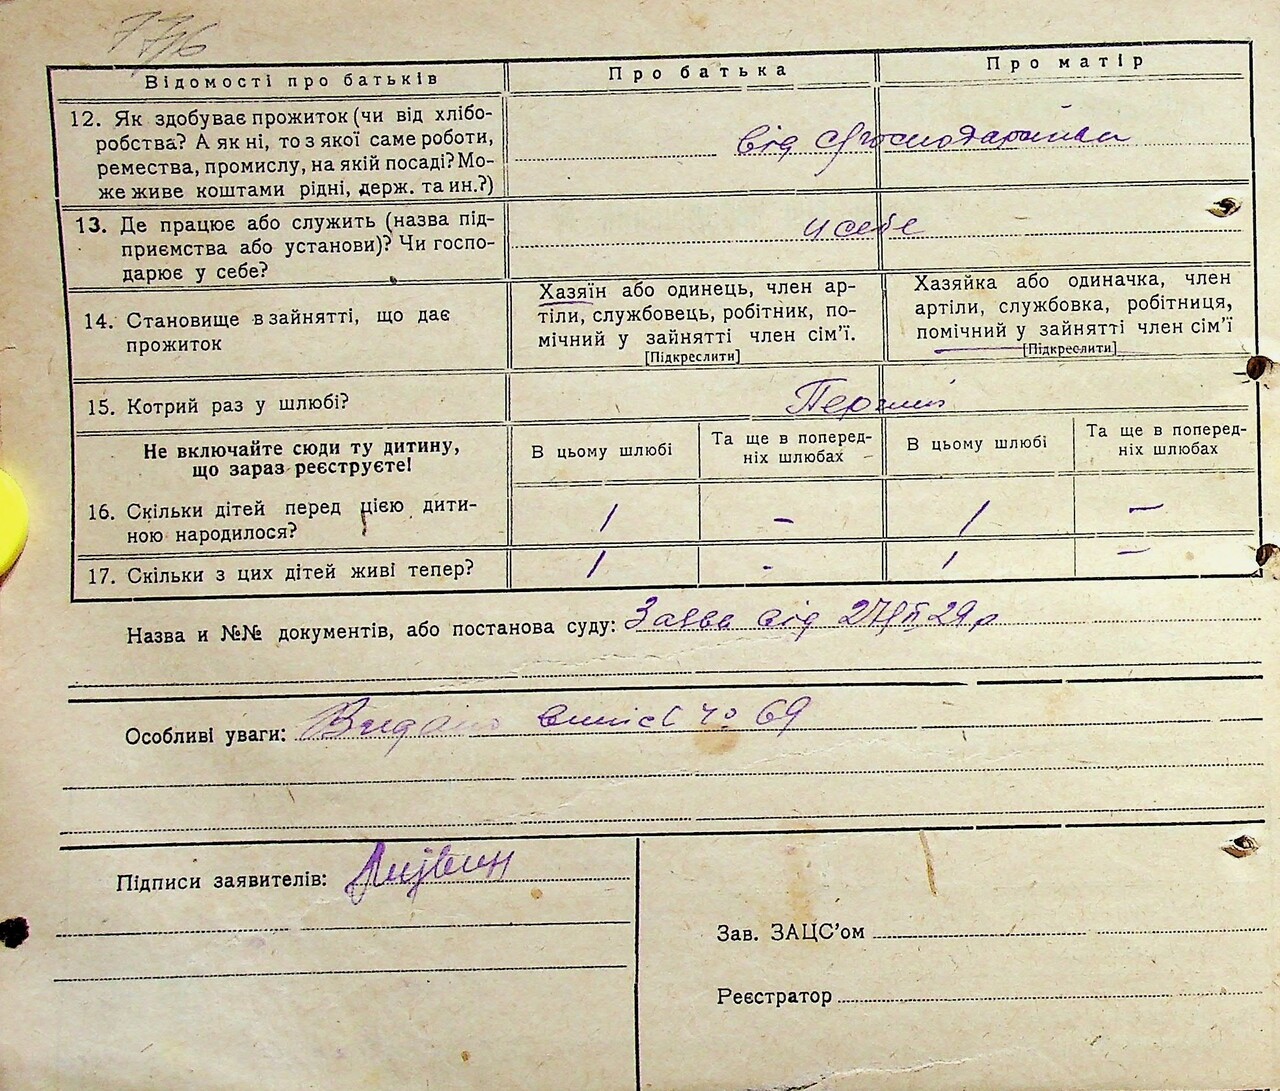 776
Відомості про батьків
Про батька
Про матір
12. Як здобуває прожиток (чи від хлібо-
робства? А як ні, то з якої саме роботи,
ремества, промислу, на якій посаді? Мо-
же живе коштами рідні, держ. та ин.?)
від
13. Де працює або служить (назва під-
приємства або установи)? Чи госпо-
дарює у себе?
у себе
14. Становище в зайнятті, що дає
прожиток
Хазяїн або одинець, член ар-
тіли, службовець, робітник, по-
мічний у зайнятті член сім'ї.
[Підкреслити]
Хазяйка або одиначка, член
артіли, службовка, робітниця,
помічний у зайнятті член сім'ї
[Підкреслити]
15. Котрий раз у шлюбі?
Перший
Не включайте сюди ту дитину,
що зараз реєструєте!
В цьому шлюбі
Та ще в поперед-
ніх шлюбах
В цьому шлюбі
Та ще в поперед-
ніх шлюбах
16. Скільки дітей перед цією дити-
ною народилося?
1 - 1 -
17. Скільки з цих дітей живі тепер?
1 - 1 -
Назва и №№ документів, або постанова суду: Заява від 29р
Особливі уваги: Видано № 69
Підписи заявителів:
Зав. ЗАЦС'ом
Реєстратор